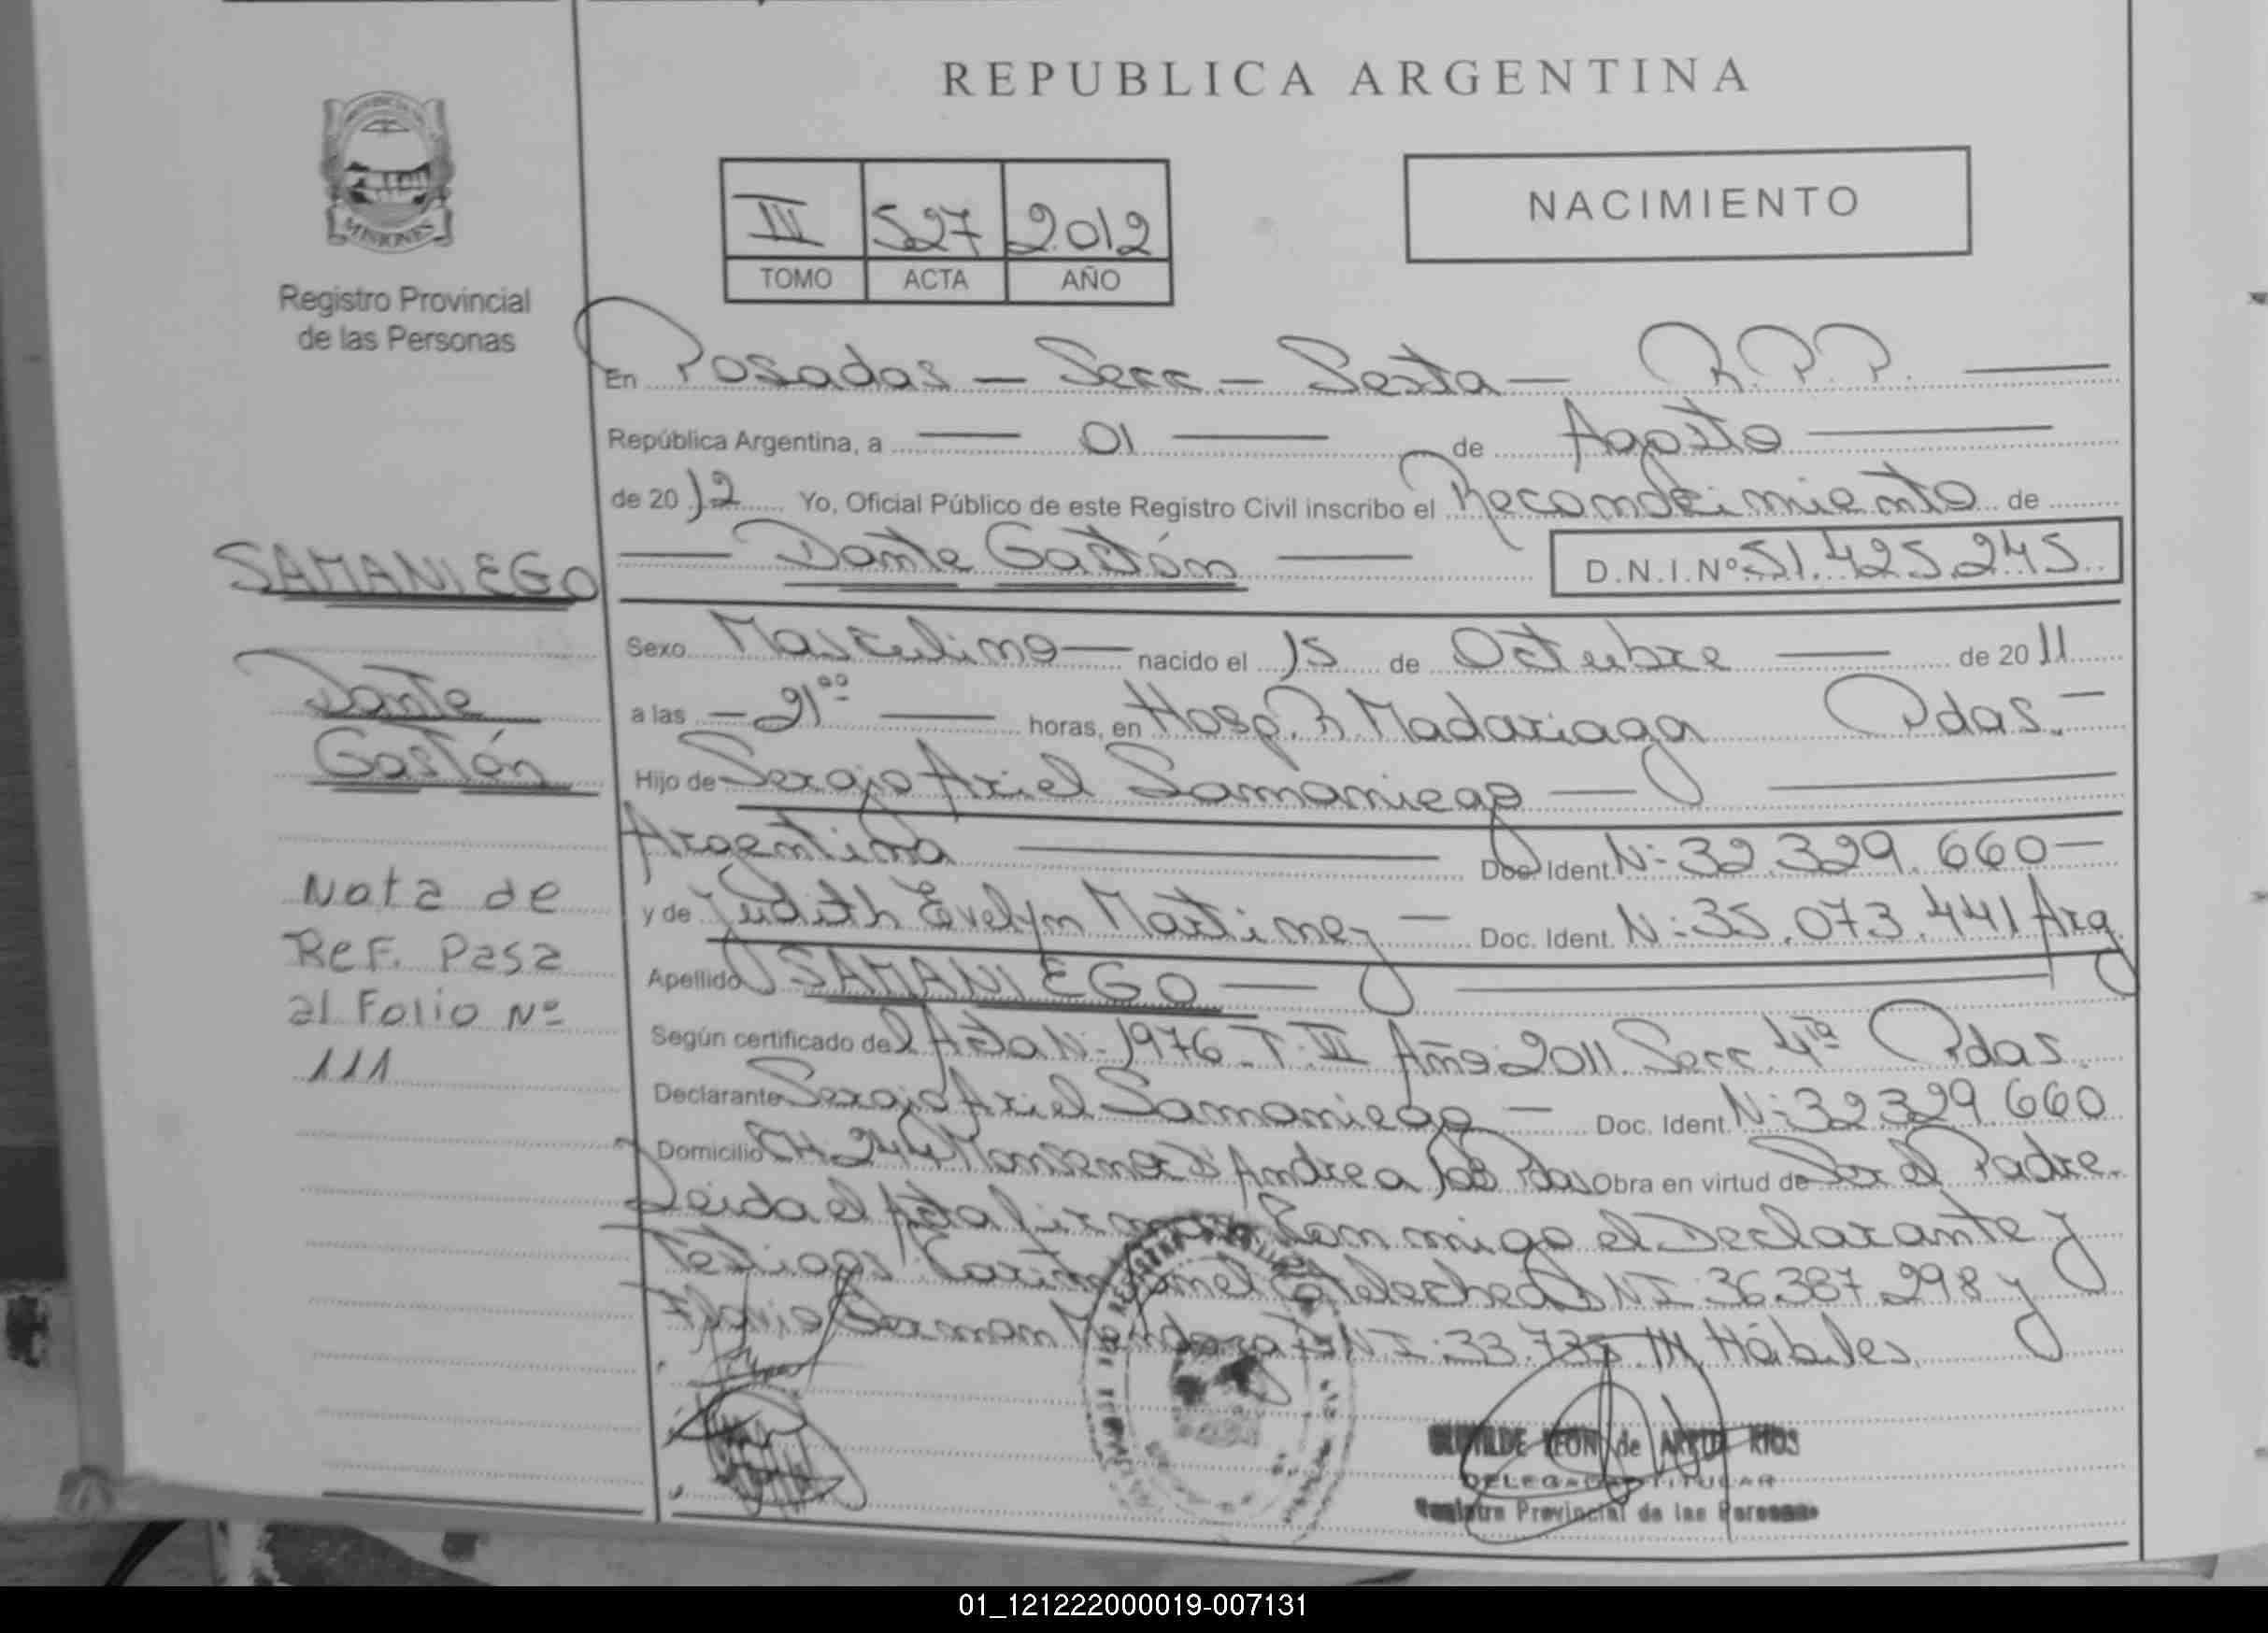 REPUBLICA ARGENTINA
PROVINCIA DE
MISIONES
Registro Provincial
de las Personas
III 527 2012
TOMO ACTA AÑO
NACIMIENTO
En Posadas — Secc. — Sexta — R.P.P. —
República Argentina, a — 01 — de Agosto —
de 2012 Yo, Oficial Público de este Registro Civil inscribo el Reconocimiento de
— Dante Gastón — D.N.I.Nº 51.425.245
SAMANIEGO
Dante
Gastón
Nota de
Ref. Pasa
al Folio Nº
111
Sexo Masculino — nacido el 15 de Octubre — de 2011
a las — 21ºº — horas, en Hosp. R Madariaga Pdas. —
Hijo de Sergio Ariel Samaniego —
Argentino — Doc. Ident. N: 32.329.660 —
y de Judith Evelyn Martinez — Doc. Ident. N: 35.073.441 Arg
Apellido SAMANIEGO —
Según certificado del Acta N: 1976 T: III Año: 2011. Secc. 4ta Pdas.
Declarante Sergio Ariel Samaniego — Doc. Ident. N: 32.329.660
Domicilio CH. 244 Andrea Pdas Obra en virtud de Ser el Padre.
Leida el Acta firman Conmigo el Declarante y
Testigos DNI: 36.387.298 y
German DNI: 33.735 Hábiles
de RIOS
DELEGADA TITULAR
Registro Provincial de las Personas
01_121222000019-007131